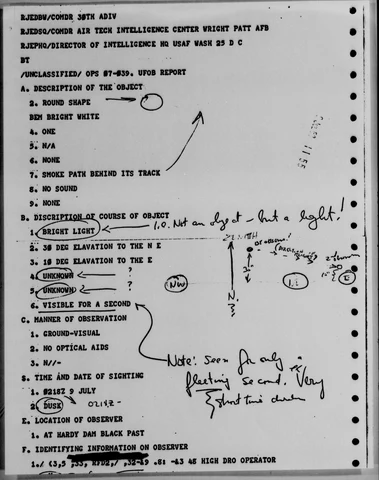 RJEDBW/COMDR 30TH ADIV
RJEDSQ/COMDR AIR TECH INTELLIGENCE CENTER WRIGHT PATT AFB
RJEPHQ/DIRECTOR OF INTELLIGENCE HQ USAF WASH 25 D C
BT
/UNCLASSIFIED/ OPS 07-039. UFOB REPORT
A. DESCRIPTION OF THE OBJECT
2. ROUND SHAPE
BEM BRIGHT WHITE
4. ONE
5. N/A
6. NONE
7. SMOKE PATH BEHIND ITS TRACK
8. NO SOUND
9. NONE
B. DISCRIPTION OF COURSE OF OBJECT
I.O. Not an object - but a light!
1. BRIGHT LIGHT
2. 30 DEG ELAVATION TO THE N E
3. 10 DEG ELAVATION TO THE E
4. UNKNOWN ?
5. UNKNOWN ?
NW
N.
?
E
6. VISIBLE FOR A SECOND
C. MANNER OF OBSERVATION
1. GROUND-VISUAL
2. NO OPTICAL AIDS
3. N//-
Note: seen for only a
fleeting second. Very
short time
S. TIME AND DATE OF SIGHTING
1. 0218Z 9 JULY
2. DUSK 0218Z
E. LOCATION OF OBSERVER
1. AT HARDY DAM BLACK PAST
F. IDENTIFYING INFORMATION ON OBSERVER
HIGH DRO OPERATOR